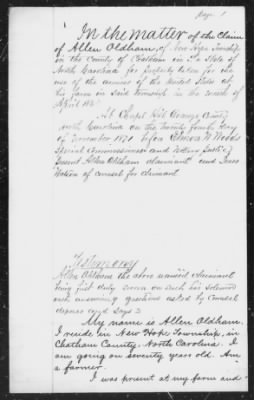 Page 1
In the matter of the Claim
of Allen Oldham, of New Hope Township
in the County of Chatham in the State of
North Carolina for property taken for the
use of the armies of the United States at
his farm in said Township in the month of
April 186
At Chapel Hill Orange County
North Carolina on the Twenty fourth day
of November 1871 before
Special Commissioner and
Present Allen Oldham claimant and
of counsel for claimant
Testimony
Allen Oldham the above named claimant
being first duly sworn on oath his solemn
oath answering questions asked by Counsel
deposes and says:
My name is Allen Oldham.
I reside in New Hope Township, in
Chatham County. North Carolina. I
am going on seventy years old. Am
a farmer.
I was present at my farm and